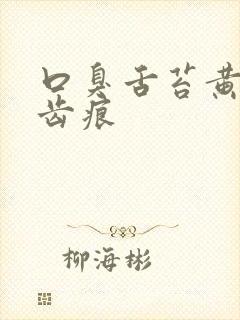 口臭舌苔黄
齿痕
柳海彬